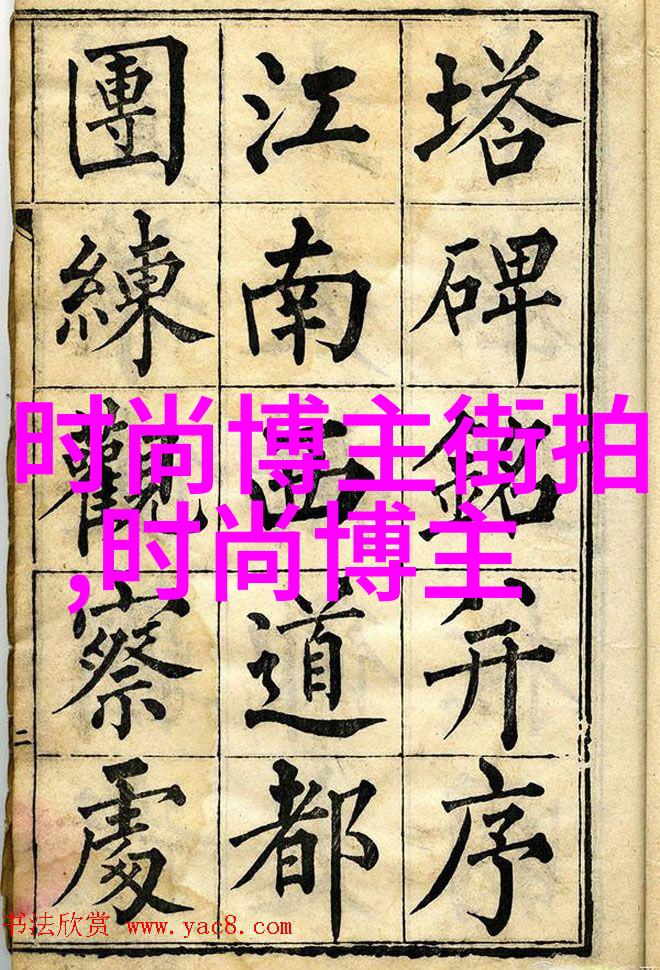 塔碑銘并序
江南西道都
團練觀察處
二
时尚博主街拍
,时尚博主
书法欣赏 www.yac8.com